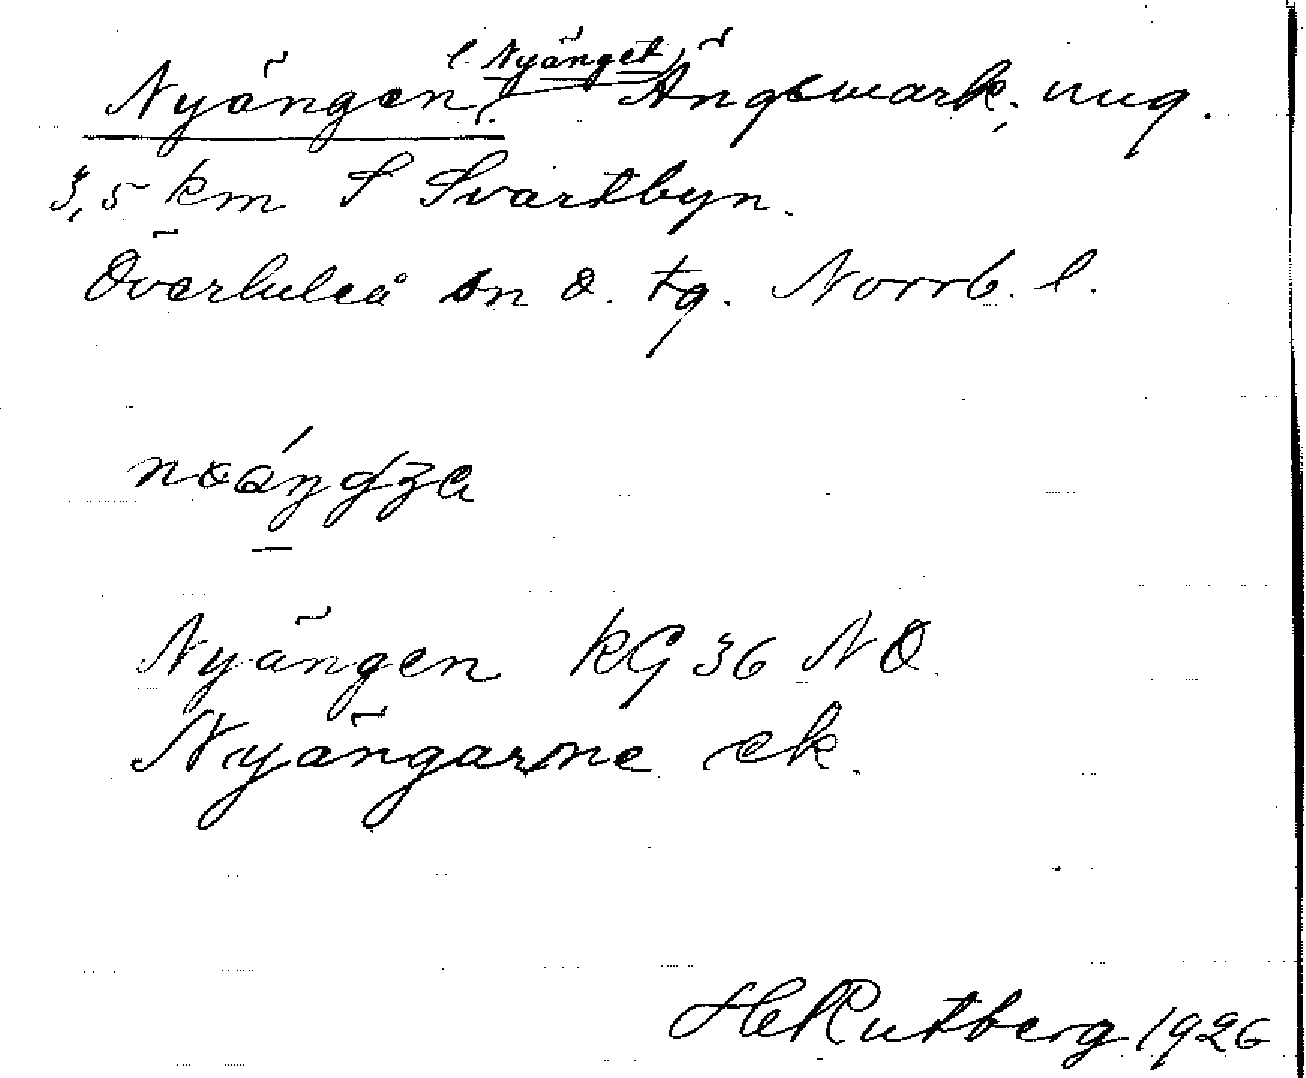 Nyängen (l. Nyänget). Ängsmark, ung.
3,5 km S Svartbyn.
Överluleå sn Ö. tg. Norrb. l.
Nyängen KG 36 NO
Nyängarne ek.
HeRutberg 1926